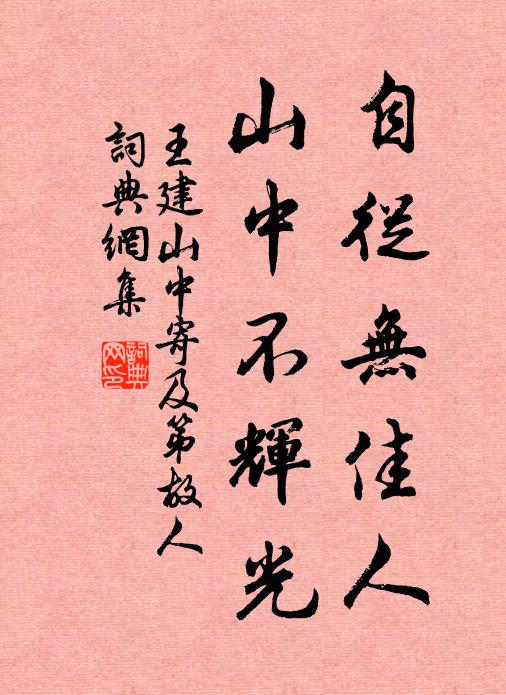 自從無佳人
山中不輝光
王建山中寄及第故人
詞典網集
詞典
网印